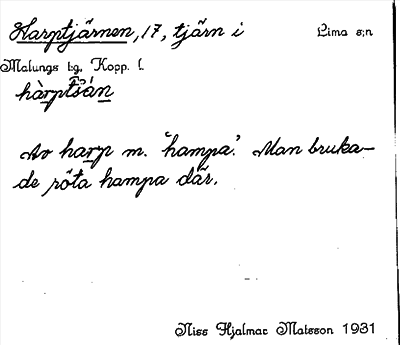 Harptjärnen, 17, tjärn i Lima s:n
Malungs tg, Kopp. l.
hàrptšán
Av harp m. "hampa". Man bruka-
de röta hampa där.
Niss Hjalmar Matsson 1931